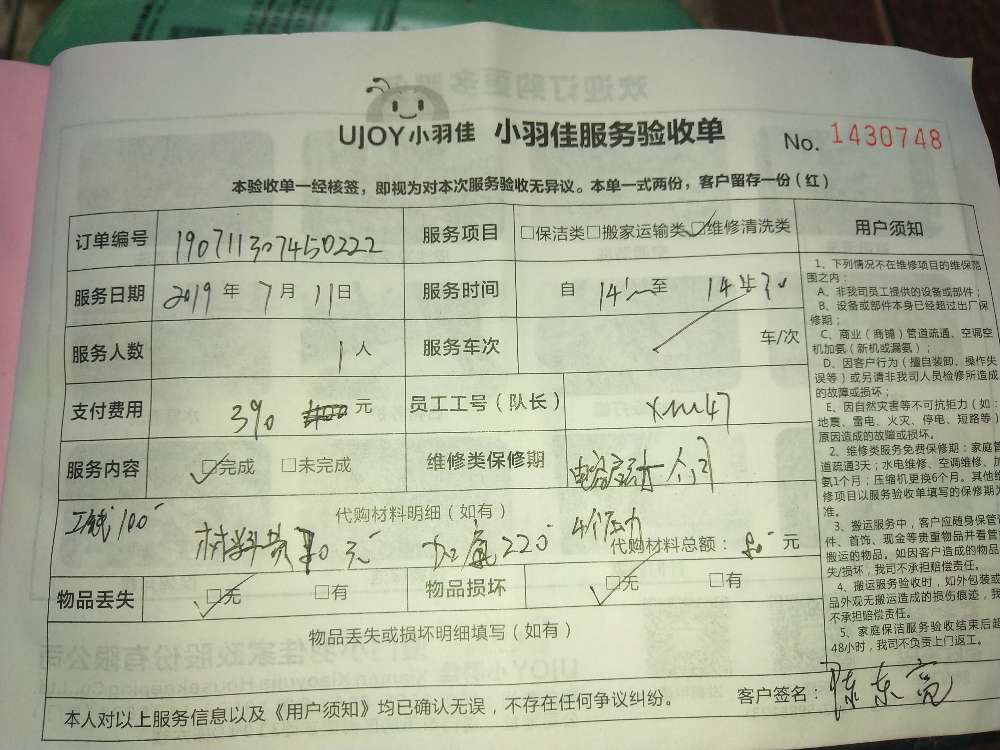 UJOY小羽佳 小羽佳服务验收单 No. 1430748
本验收单一经核签，即视为对本次服务验收无异议。本单一式两份，客户留存一份（红）
订单编号 190711307450222 服务项目 □保洁类□搬家运输类□维修清洗类
服务日期 2019 年 7 月 11 日 服务时间 自 14 至 14
服务人数 1 人 服务车次 车/次
支付费用 390 元 员工工号（队长） XM47
服务内容 □完成 □未完成 维修类保修期
代购材料明细（如有）
工钱100
材料费 元 加氟220 4个压力 代购材料总额： 元
物品丢失 □无 □有 物品损坏 □无 □有
物品丢失或损坏明细填写（如有）
本人对以上服务信息以及《用户须知》均已确认无误，不存在任何争议纠纷。 客户签名： 陈东亮
用户须知
1、下列情况不在维修项目的维保范
围之内：
A、非我司员工提供的设备或部件；
B、设备或部件本身已经超过出厂保
修期；
C、商业（商铺）管道疏通、空调空
机加氨（新机或漏氨）；
D、因客户行为（擅自装卸、操作失
误等）或另请非我司人员检修所造成
的故障或损坏；
E、因自然灾害等不可抗拒力（如：
地震、雷电、火灾、停电、短路等）
原因造成的故障或损坏。
2、维修类服务免费保修期：家庭管
道疏通3天；水电维修、空调维修、加
氨1个月；压缩机更换6个月。其他维
修项目以服务验收单填写的保修期为
准。
3、搬运服务中，客户应随身保管证
件、首饰、现金等贵重物品并看管
搬运的物品。如因客户造成的物品
失/损坏，我司不承担赔偿责任。
4、搬运服务验收时，如外包装或
品外观无搬运造成的损伤痕迹，我
不承担赔偿责任。
5、家庭保洁服务验收结束后超
48小时，我司不负责上门返工。